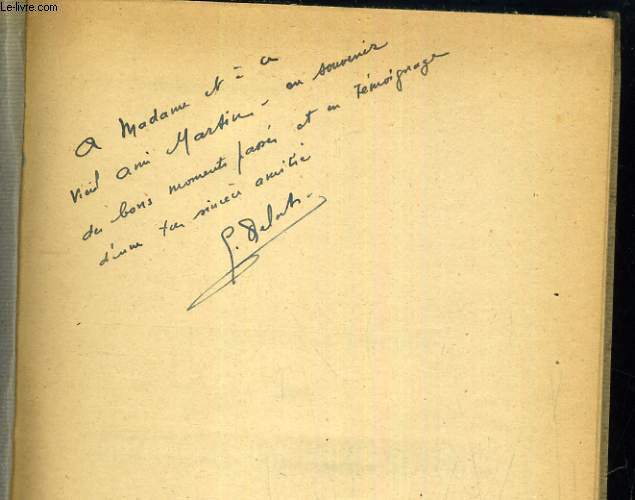 Le-livre.com
A Madame et à ce
vieil ami Martin - en souvenir
des bons moments passés et en témoignage
d'une très sincère amitié